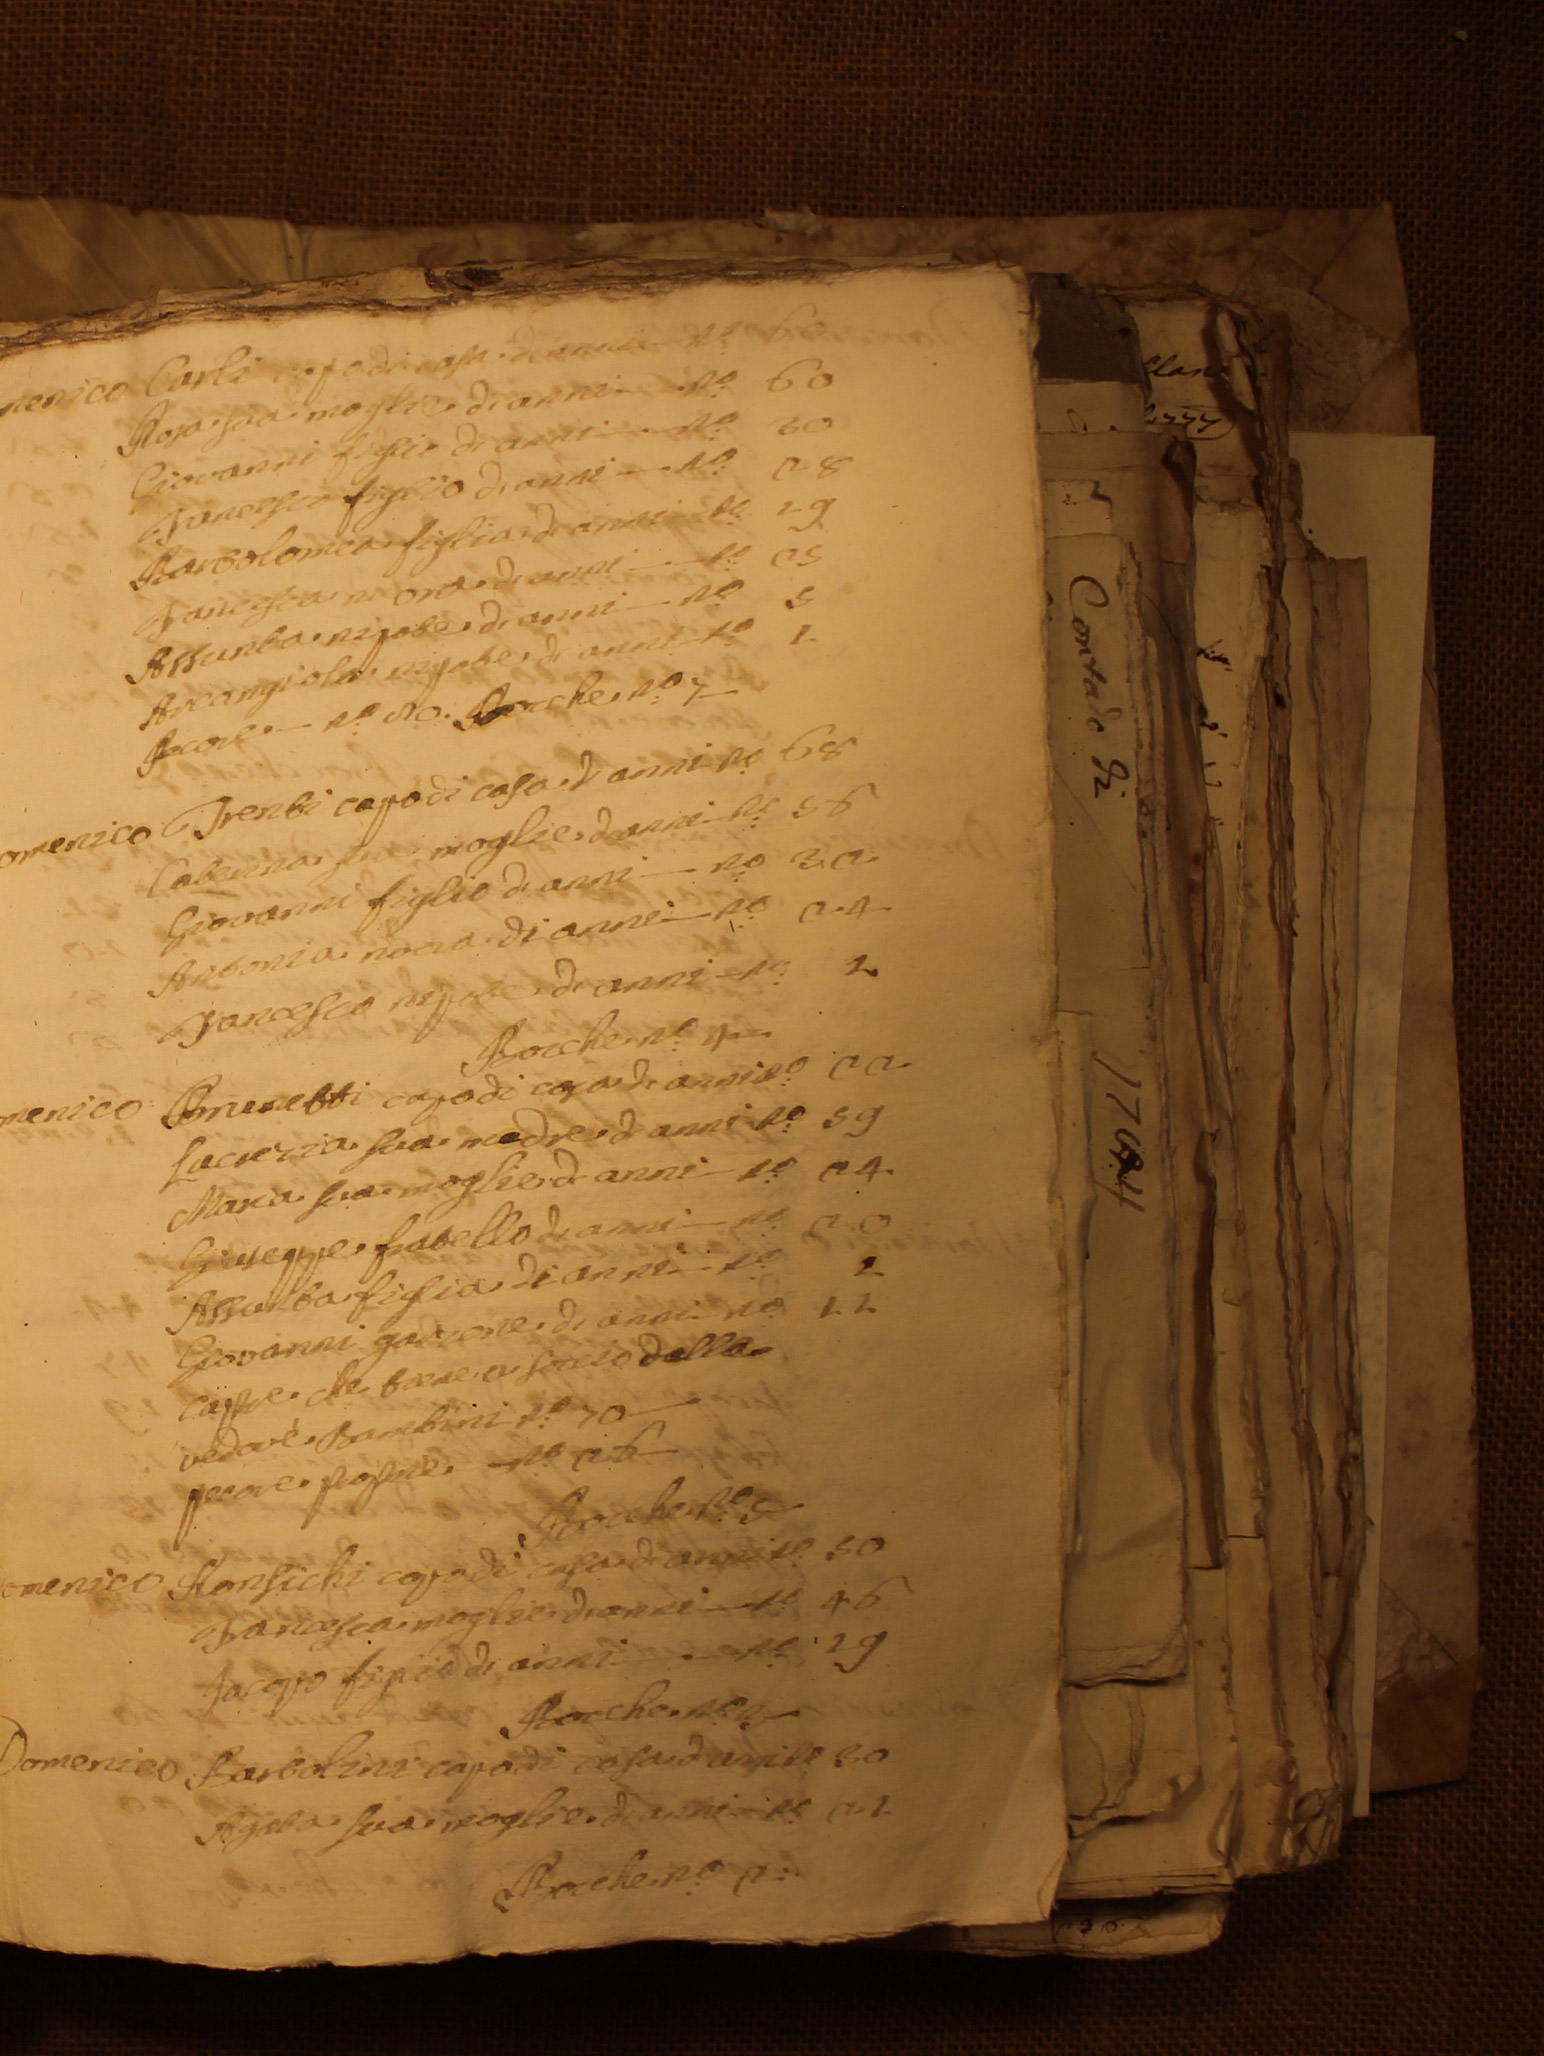 menico Carli capo di casa di anni no 60
Rosa sua moglie di anni no 60
Giovanni figlio di anni no 30
Francesco figlio di anni no 28
Bartolomea figlia di anni no 19
Francesca nora di anni no 25
Assunta nipote di anni no 5
Arcangiola nipote di anni no 1
Pecore no 80. Bocche no 7
omenico Trenti capo di casa di anni no 68
Caterina sua moglie di anni no 56
Giovanni figlio di anni no 32
Antonia nora di anni no 24
Francesco nipote di anni no 1
Bocche no 4
menico Brunetti capo di casa di anni no 22
Lucrezia sua madre di anni no 59
Maria sua moglie di anni no 24
Giuseppe fratello di anni no 20
Assunta figlia di anni no 1
Giovanni garzone di anni no 11
capre che tiene a soccio della
vedova Bambini no 70
pecore proprie no 26
Bocche no 5
omenico Ronsichi capo di casa di anni no 50
Francesca moglie di anni no 46
Jacopo figlio di anni no 19
Bocche no 3
Domenico Bartolini capo di casa di anni no 30
Agata sua moglie di anni no 21
Bocche no 2
Contado di